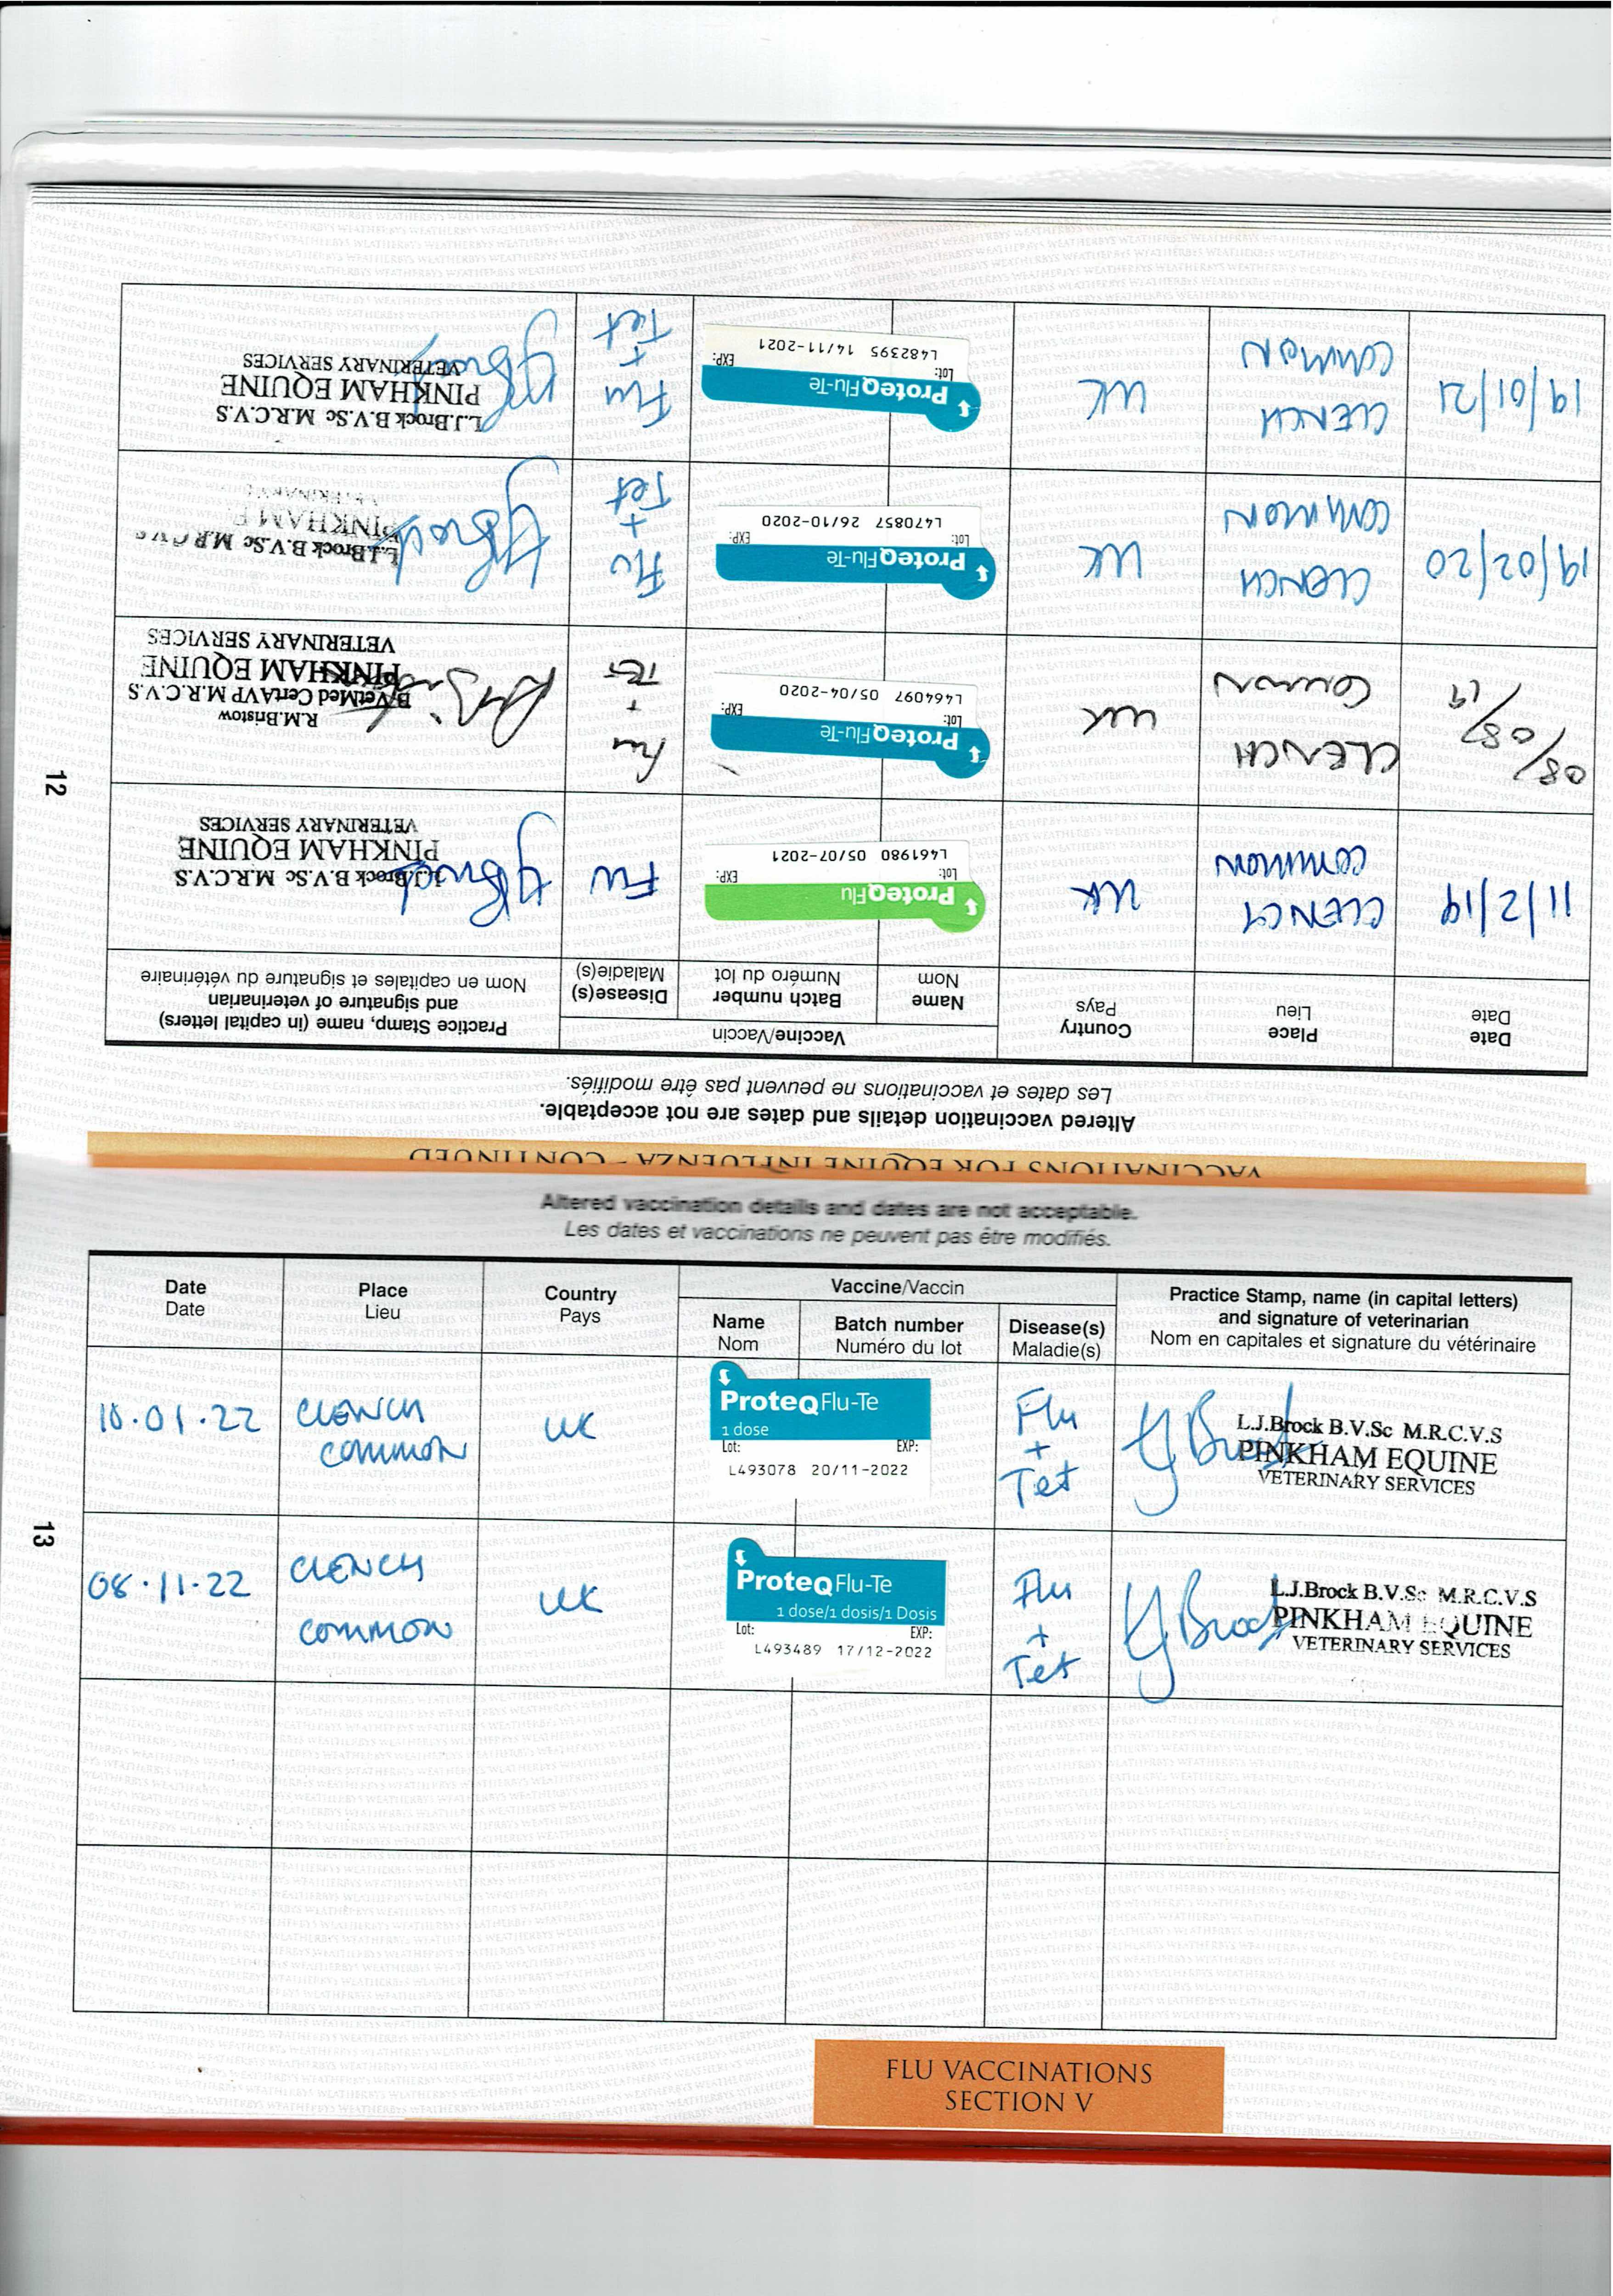 VACCINATIONS FOR EQUINE INFLUENZA - CONTINUED
Altered vaccination details and dates are not acceptable.
Les dates et vaccinations ne peuvent pas être modifiés.
Date
Date
Place
Lieu
Country
Pays
Vaccine/Vaccin
Name
Nom
Batch number
Numéro du lot
Disease(s)
Maladie(s)
Practice Stamp, name (in capital letters)
and signature of veterinarian
Nom en capitales et signature du vétérinaire
11/2/19
CLENCH
COMMON
UK
ProteqFlu
Lot: EXP:
L461980 05/07-2021
Flu
L.J.Brock B.V.Sc M.R.C.V.S
PINKHAM EQUINE
VETERINARY SERVICES
08/08/19
CLENCH
COMMON
UK
ProteqFlu-Te
Lot: EXP:
L464097 05/04-2020
Flu
+
TET
R.M.Bristow
B.VetMed CertAVP M.R.C.V.S
PINKHAM EQUINE
VETERINARY SERVICES
19/02/20
CLENCH
COMMON
UK
ProteqFlu-Te
Lot: EXP:
L470857 26/10-2020
Flu
+
Tet
L.J.Brock B.V.Sc M.R.C.V.S
PINKHAM E
VETERINARY
19/01/21
CLENCH
COMMON
UK
ProteqFlu-Te
Lot: EXP:
L482395 14/11-2021
Flu
+
Tet
L.J.Brock B.V.Sc M.R.C.V.S
PINKHAM EQUINE
VETERINARY SERVICES
12
Altered vaccination details and dates are not acceptable.
Les dates et vaccinations ne peuvent pas être modifiés.
Date
Date
Place
Lieu
Country
Pays
Vaccine/Vaccin
Name
Nom
Batch number
Numéro du lot
Disease(s)
Maladie(s)
Practice Stamp, name (in capital letters)
and signature of veterinarian
Nom en capitales et signature du vétérinaire
10.01.22
CLENCH
COMMON
UK
ProteqFlu-Te
1 dose
Lot: EXP:
L493078 20/11-2022
Flu
+
Tet
L.J.Brock B.V.Sc M.R.C.V.S
PINKHAM EQUINE
VETERINARY SERVICES
08.11.22
CLENCH
COMMON
UK
ProteqFlu-Te
1 dose/1 dosis/1 Dosis
Lot: EXP:
L493489 17/12-2022
Flu
+
Tet
L.J.Brock B.V.Sc M.R.C.V.S
PINKHAM EQUINE
VETERINARY SERVICES
13
FLU VACCINATIONS
SECTION V